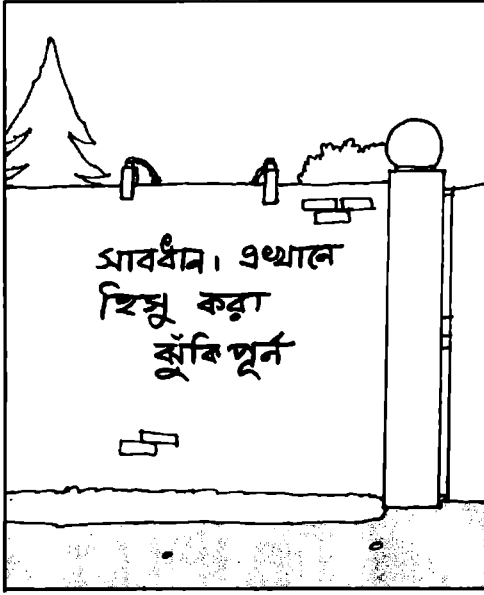 সাবধান। এখানে
হিসু করা
ঝুঁকি পূর্ন